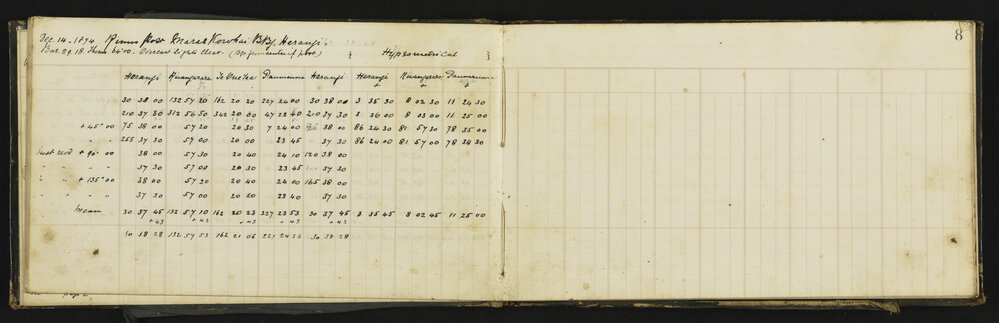 8
Dec. 14 - 1874 Rimu Post Marae Kowhai B By. Herangi
Bar. 29.18 Therm 64.00. Overcast lights clear. (Dep from centre of post)
Hypsometrical
Herangi Ruangarera Te Onetea Taumaunu Herangi Herangi Ruangarera Taumaunu
+ + +
30 38 00 132 57 20 162 20 20 227 24 00 30 38 00 3 35 30 8 02 30 11 24 30
210 37 30 312 56 50 342 20 00 47 23 40 210 37 30 3 36 00 8 03 00 11 25 00
+ 45° 00 75 38 00 57 20 20 30 7 24 00 75 38 00 86 24 30 81 57 30 78 35 00
" " 255 37 30 57 00 20 00 23 45 37 30 86 24 00 81 57 00 78 34 30
Inst rev'd + 90° 00 38 00 57 30 20 40 24 10 120 38 00
" " " 37 30 57 00 20 30 23 45 37 30
" " + 135° 00 38 00 57 20 20 40 24 00 165 38 00
" " " 37 30 57 00 20 20 23 40 37 30
Mean 30 37 45 132 57 10 162 20 23 227 23 53 30 37 45 3 35 45 8 02 45 11 25 00
+ 43 + 43 + 43 + 43 + 43
30 38 28 132 57 53 162 21 06 227 24 36 30 38 28